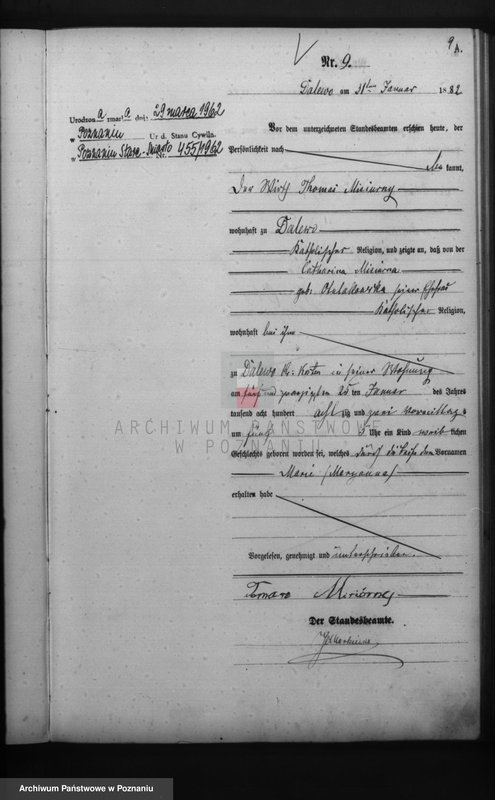 9
A.
Nr. 9.
Dalewo am 31ten Januar 1882
Urodzona zmarła dnia 29 marca 1962
w Poznaniu Urząd Stanu Cywiln.
w Poznaniu Stare-Miasto Nr. 455/1962
Vor dem unterzeichneten Standesbeamten erschien heute, der
Persönlichkeit nach
kannt,
Der Wirth Thomas
wohnhaft zu Dalewo
Katholischer Religion, und zeigte an, daß von der
Catharina
geb. seiner Ehefrau
Katholischer Religion,
wohnhaft bei ihm
zu Dalewo in seiner Wohnung
am fünf und zwanzigsten 25ten Januar des Jahres
tausend acht hundert achtzig und zwei Vormittags
um fünf 5 Uhr ein Kind weiblichen
Geschlechts geboren worden sei, welches durch die Taufe den Vornamen
Marie (Maryanna)
erhalten habe
Vorgelesen, genehmigt und unterschrieben.
Der Standesbeamte.
ARCHIWUM PAŃSTWOWE
W POZNANIU
Archiwum Państwowe w Poznaniu